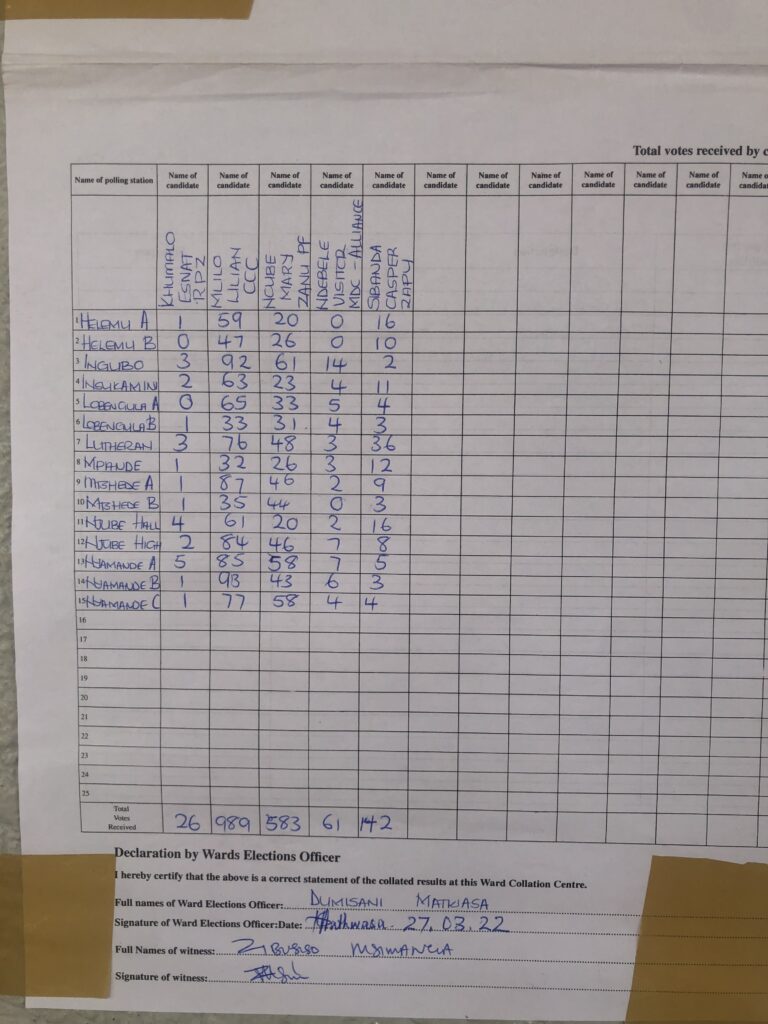 Total votes received by c
Name of polling station Name of candidate Name of candidate Name of candidate Name of candidate Name of candidate Name of candidate Name of candidate Name of candidate Name of candidate Name of candidate Name of candidate Name of candida
KHUMALO ESNAT RPZ
MLILO LILIAN CCC
NCUBE MARY ZANU PF
NDEBELE VISITOR MDC - ALLIANCE
SIBANDA CASPER ZAPU
1 HELEMU A 1 59 20 0 16
2 HELEMU B 0 47 26 0 10
3 INGUBO 3 92 61 14 2
4 INSUKAMINI 2 63 23 4 11
5 LOBENGULA A 0 65 33 5 4
6 LOBENGULA B 1 33 31 4 3
7 LUTHERAN 3 76 48 3 36
8 MPANDE 1 32 26 3 12
9 MTSHEDE A 1 87 46 2 9
10 MTSHEDE B 1 35 44 0 3
11 NJUBE HALL 4 61 20 2 16
12 NJUBE HIGH 2 84 46 7 8
13 NYAMANDE A 5 85 58 7 5
14 NYAMANDE B 1 93 43 6 3
15 NYAMANDE C 1 77 58 4 4
16
17
18
19
20
21
22
23
24
25
Total Votes Received 26 989 583 61 142
Declaration by Wards Elections Officer
I hereby certify that the above is a correct statement of the collated results at this Ward Collation Centre.
Full names of Ward Elections Officer: DUMISANI
Signature of Ward Elections Officer:Date: 27.03.22
Full Names of witness: ZIBUSISO MSIMANGA
Signature of witness: